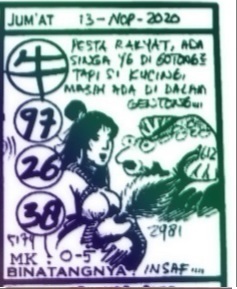 JUM'AT 13-NOP-2020
PESTA RAKYAT, ADA
SINGA YG DI GOTONG²
TAPI SI KUCING,
MASIH ADA DI DALAM
GENTONG...
牛
97
26
38
9612
5179
2981
MK : 0-5
BINATANGNYA : INSAF....